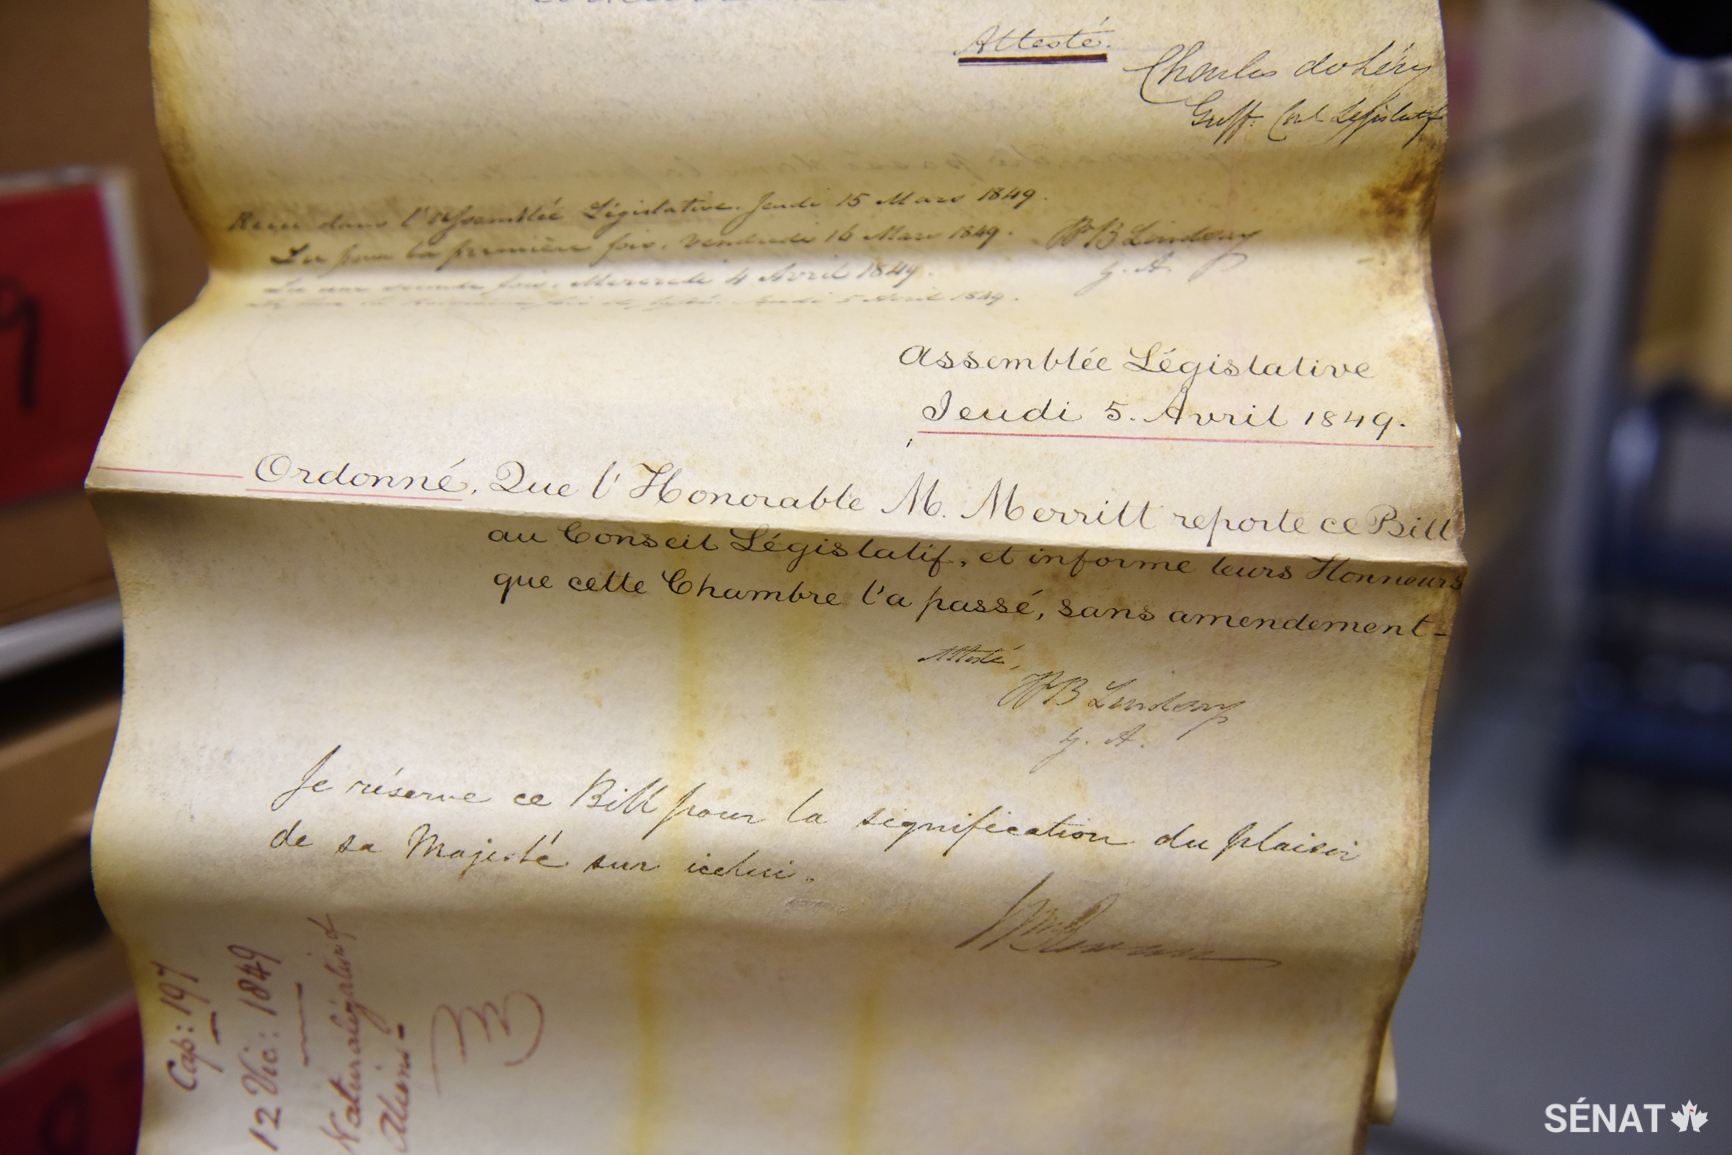 Attesté.
Charles de Léry
Greff. Conl. Législatif
Reçu dans l'Assemblée Législative. Jeudi 15 Mars 1849.
Lu pour la première fois, Vendredi 16 Mars 1849.
WB Lindsay
G. A.
Lu une seconde fois, Mercredi 4 Avril 1849.
Jeudi 5 Avril 1849.
Assemblée Législative
Jeudi 5. Avril 1849.
Ordonné, Que l'Honorable M. Merritt reporte ce Bill
au Conseil Législatif, et informe leurs Honneurs
que cette Chambre l'a passé, sans amendement-
Attesté,
WB Lindsay
G. A.
Je réserve ce Bill pour la signification du plaisir
de sa Majesté sur icelui.
Cap: 197
12 Vic: 1849
Naturalization of
Aliens-
9
SÉNAT